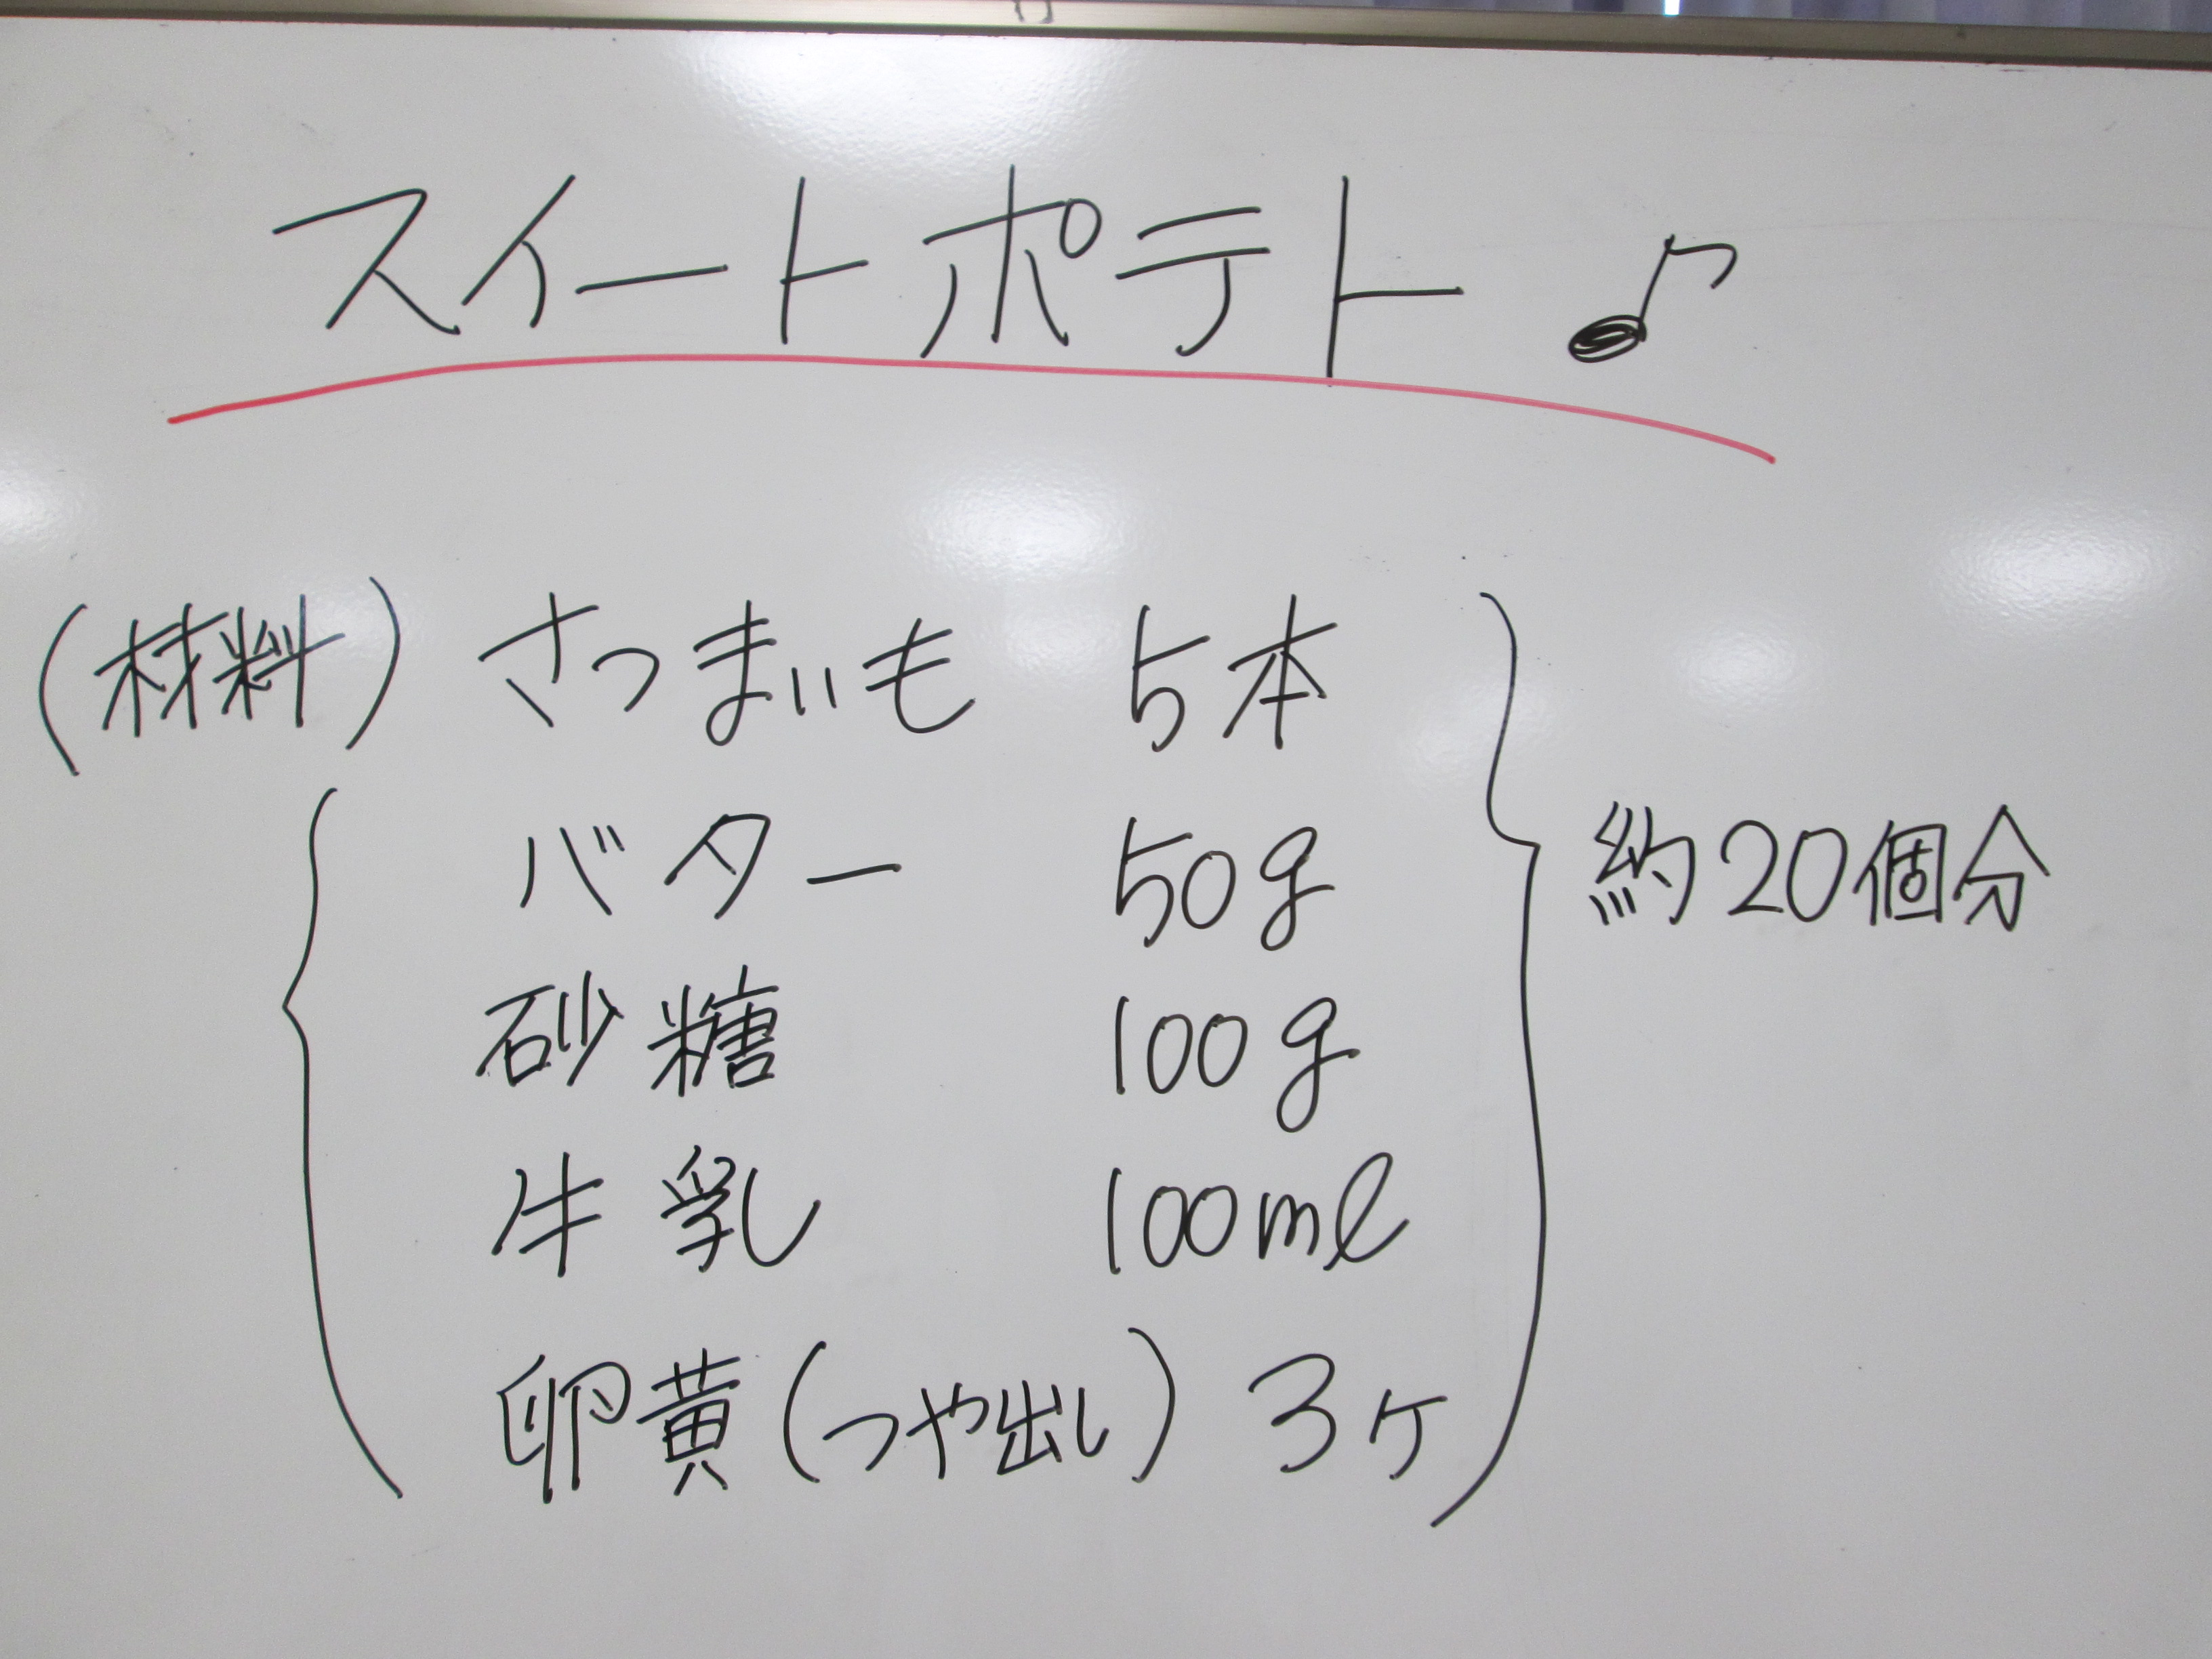 スイートポテト♪
(材料) さつまいも 5本
バター 50g
砂糖 100g
牛乳 100ml
卵黄(つや出し) 3ケ
約20個分